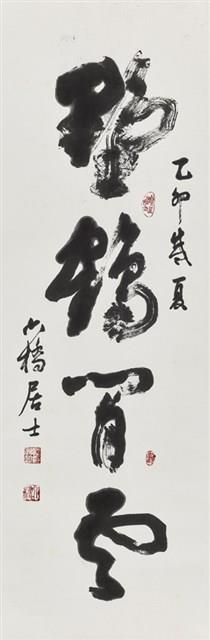 乙卯歲夏
野鶴閒雲
橋居士